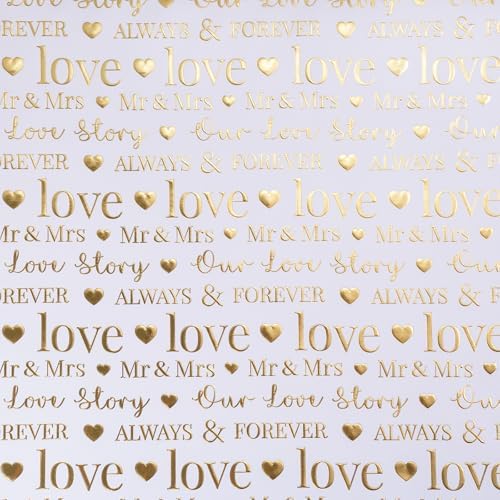 Love Story ♥ Our Love Story ♥
FOREVER ♥ ALWAYS & FOREVER ♥ ALWAYS
♥ love ♥ love ♥ love ♥ love
Mr & Mrs ♥ Mr & Mrs ♥ Mr & Mrs ♥ Mr & Mrs ♥
Love Story ♥ Our Love Story ♥ Our
FOREVER ♥ ALWAYS & FOREVER ♥ ALWAYS
♥ love ♥ love ♥ love ♥ love
Mr & Mrs ♥ Mr & Mrs ♥ Mr & Mrs ♥ Mr & Mrs ♥
Love Story ♥ Our Love Story ♥ Our
FOREVER ♥ ALWAYS & FOREVER ♥ ALWAYS
♥ love ♥ love ♥ love ♥ love
Mr & Mrs ♥ Mr & Mrs ♥ Mr & Mrs ♥ Mr & Mrs
Love Story ♥ Our Love Story ♥ Our
FOREVER ♥ ALWAYS & FOREVER ♥ ALWAYS
♥ love ♥ love ♥ love ♥ love
Mr & Mrs ♥ Mr & Mrs ♥ Mr & Mrs ♥ Mr & Mrs